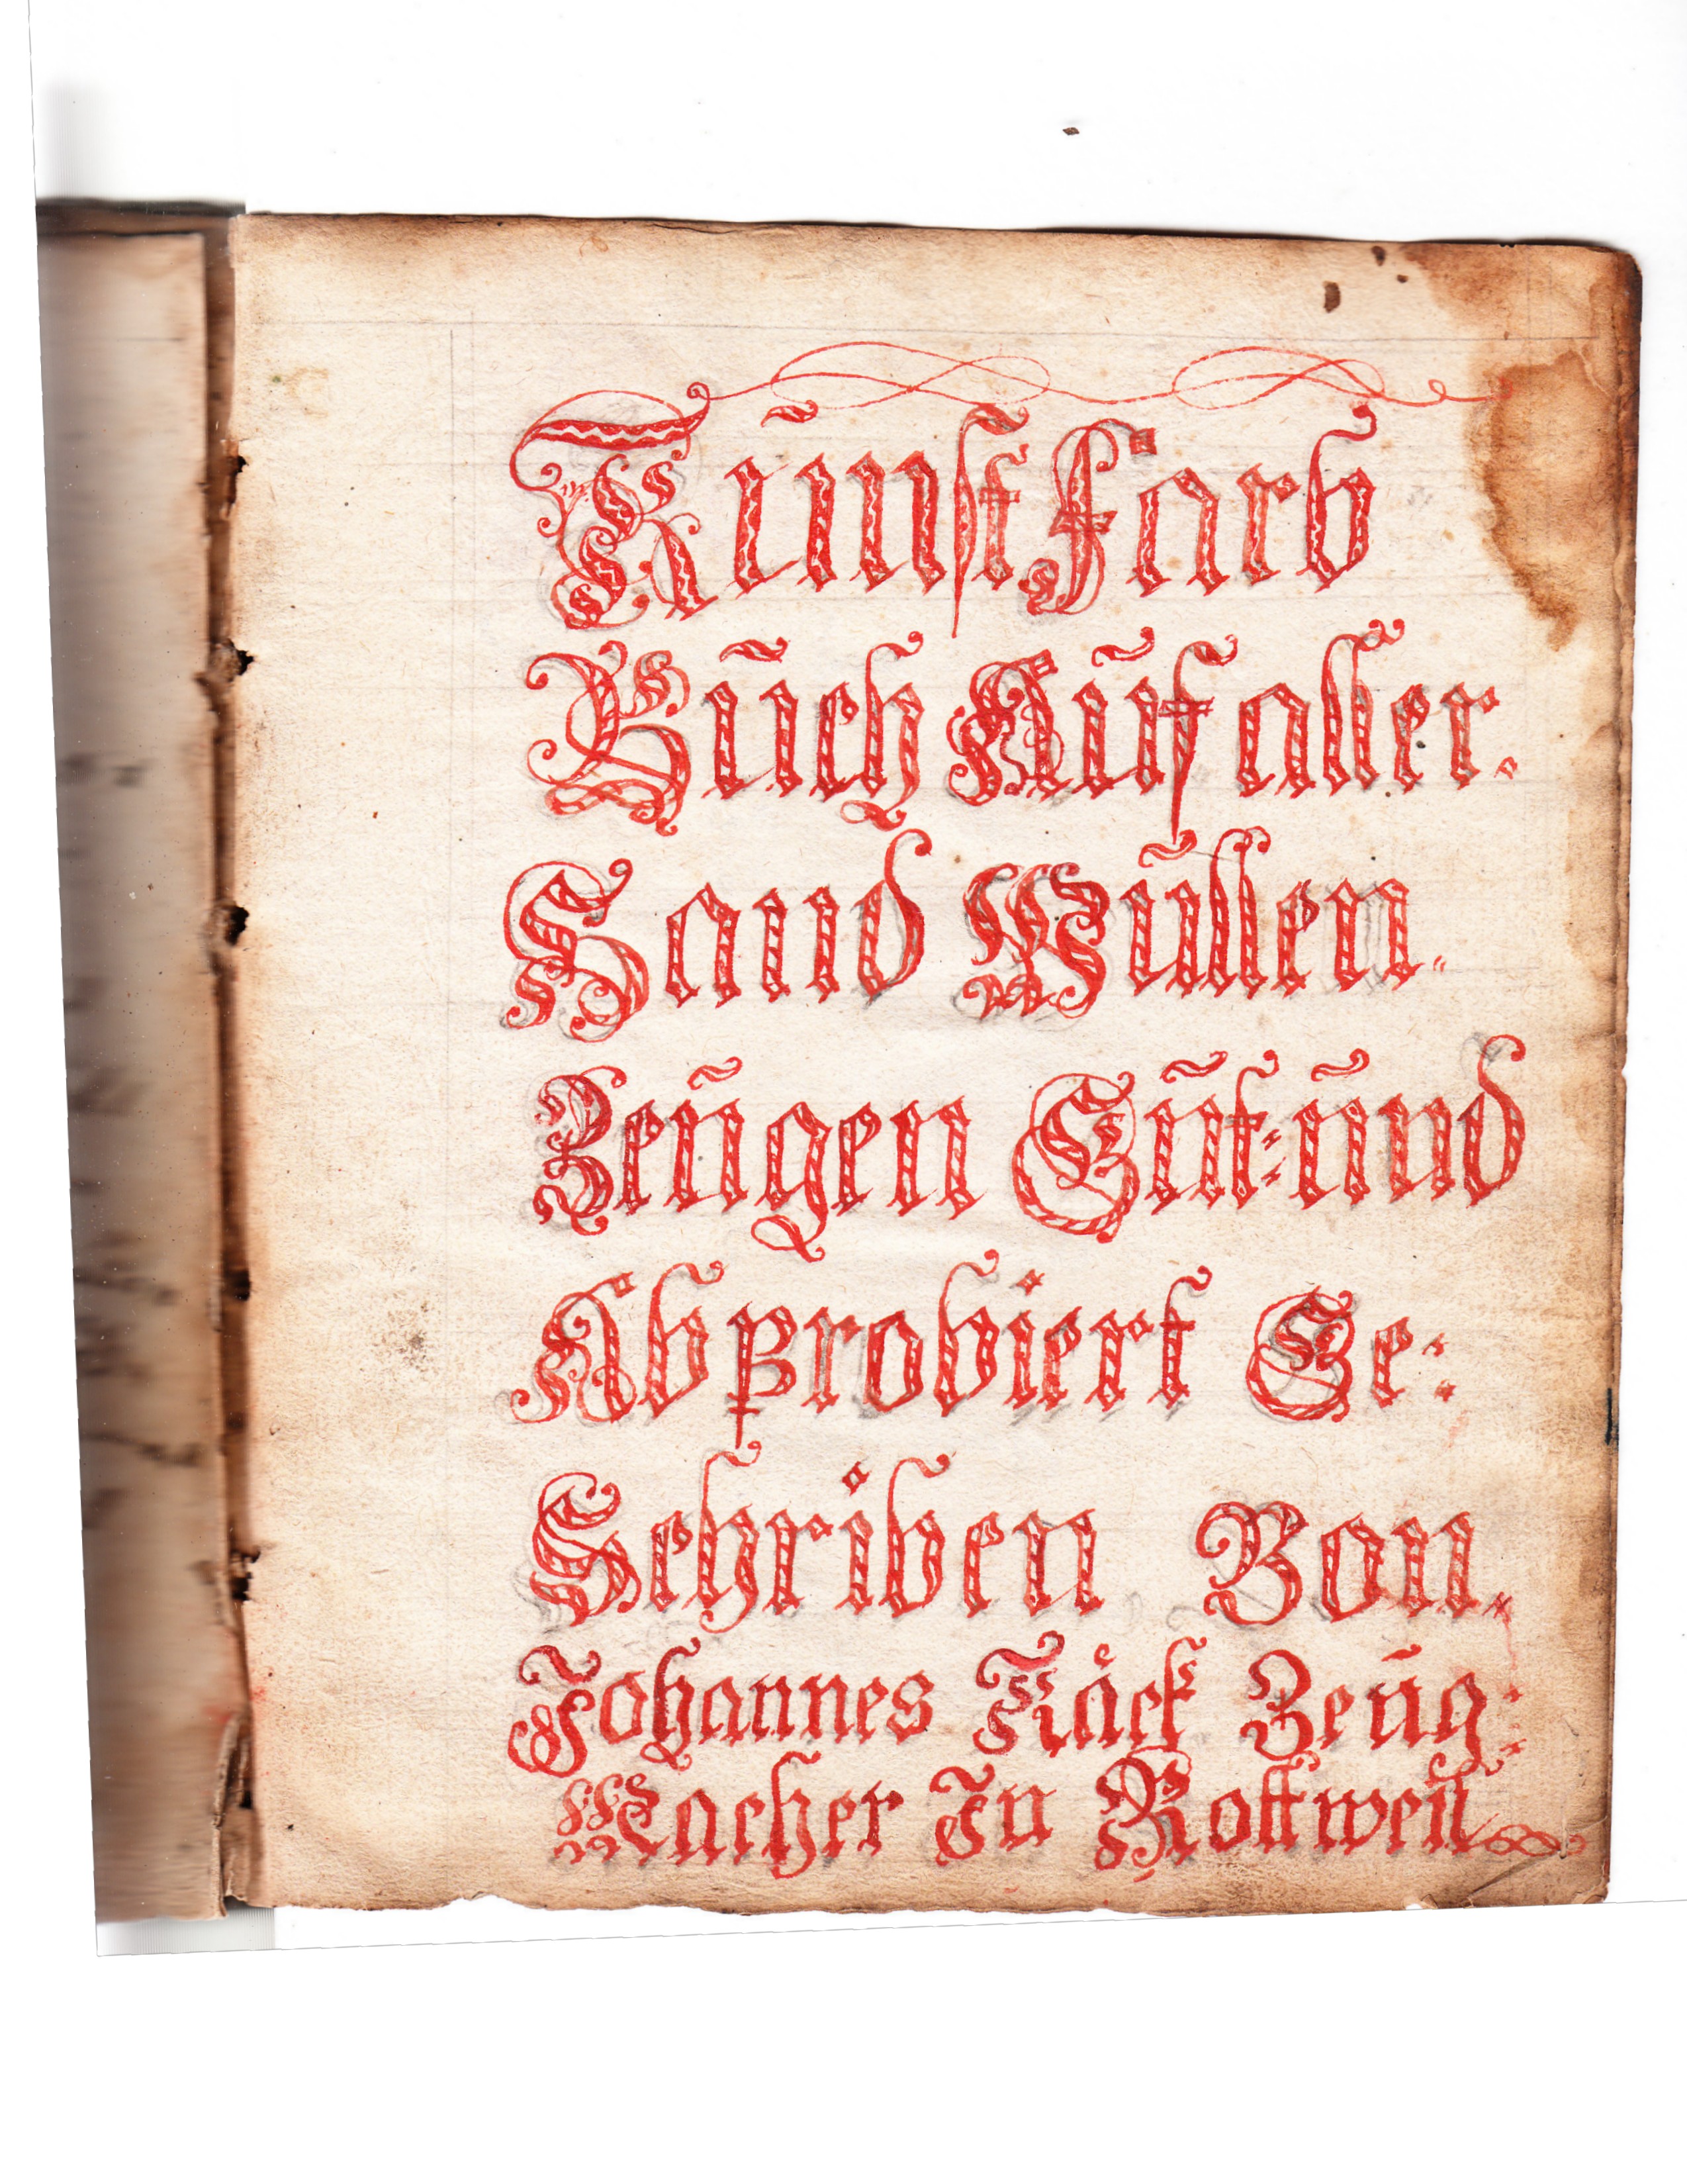 Kũnst Farb
Bũch Aũf aller.
Hand Wũllen.
Zeũgen Gũt: ũnd
Ab probiert Ge:
Schriben Von.
Johannes Käck Zeũg:
Macher In Rottweil